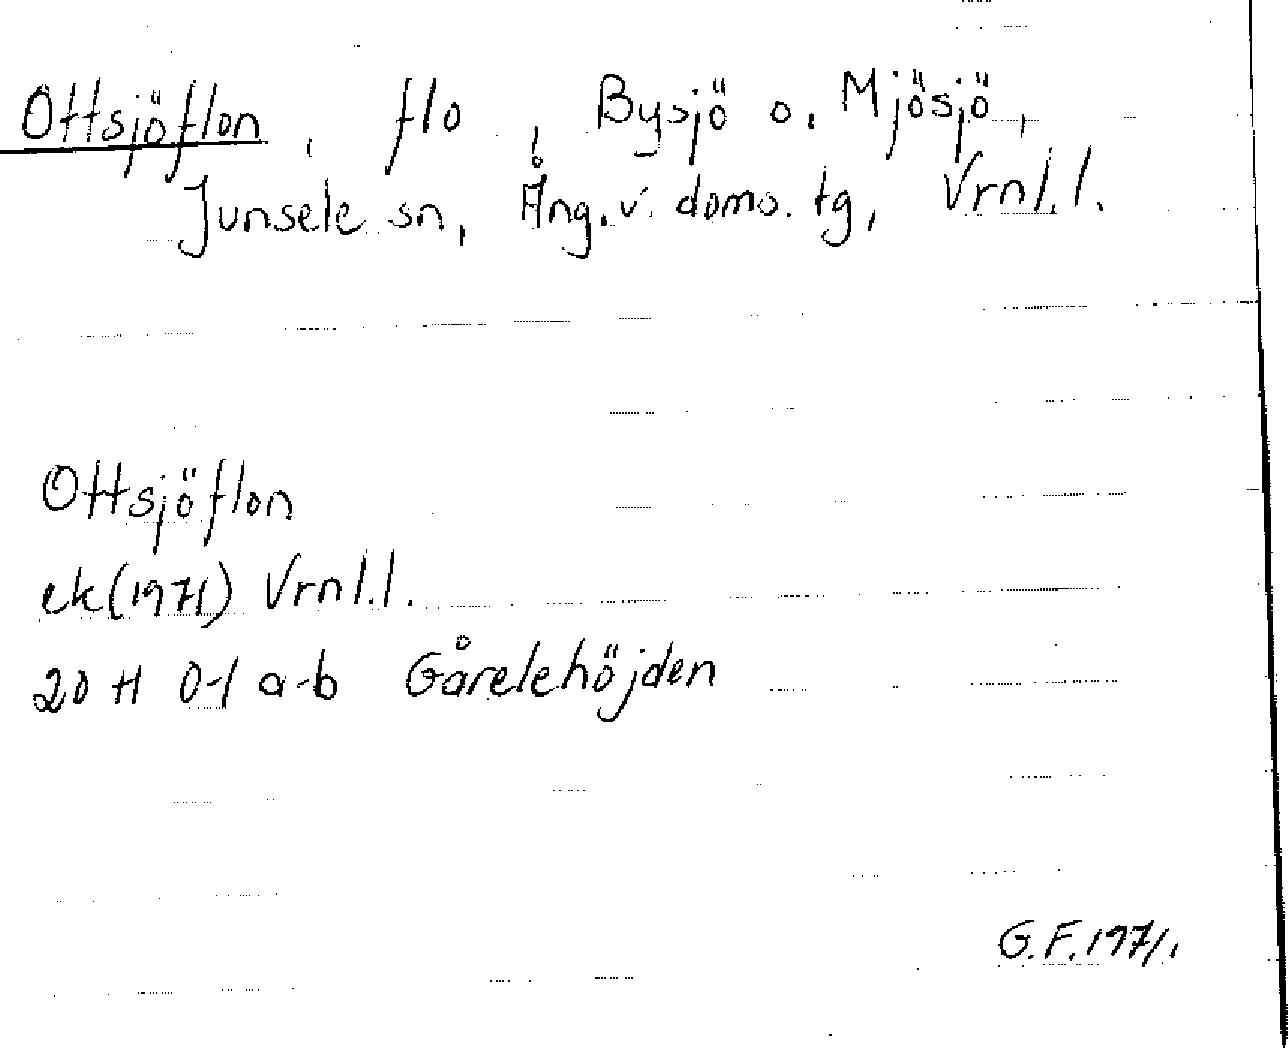 Ottsjöflon, flo, Bysjö o. Mjösjö,
Junsele sn, Ång. v. doms. tg, Vrnl. l.
Ottsjöflon
ek (1971) Vrnl. l.
20 H 0-1 a-b Gårelehöjden
G.F. 1971.